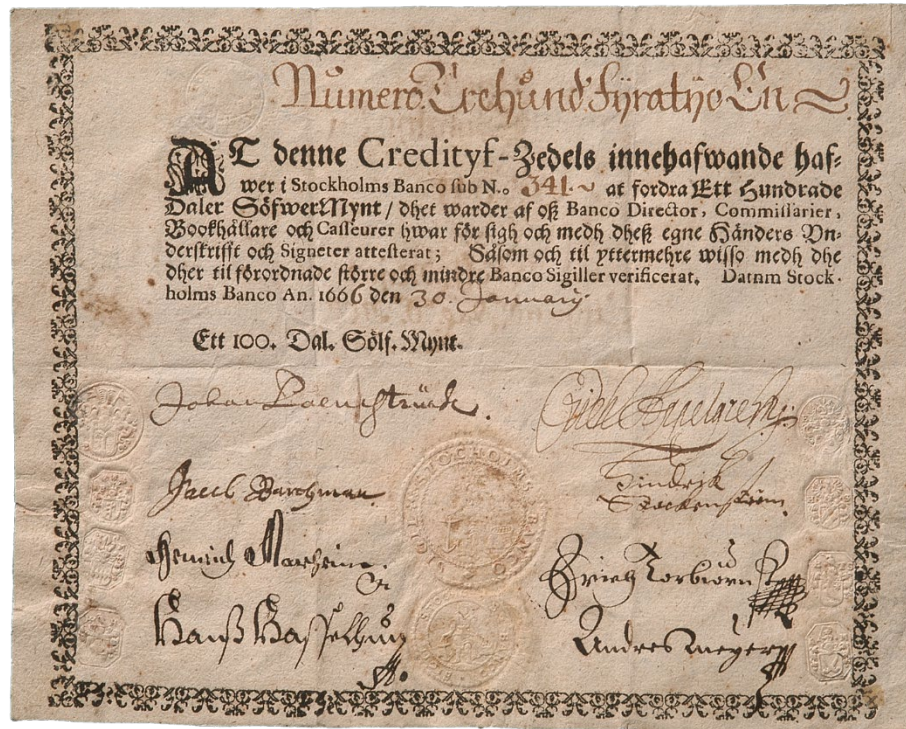 Numero Trehund Fyratijo En
AT denne Credityf-Zedels innehafwande haf-
wer i Stockholms Banco sub N.o 341. at fordra Ett Hundrade
Daler SöfwerMynt / dhet warder af oß Banco Director, Commissarier,
Bookhållare och Casseurer hwar för sigh och medh dheß egne Händers Vn-
derskrifft och Signeter attesterat; Såsom och til yttermehre wisso medh dhe
dher til förordnade större och mindre Banco Sigiller verificerat. Datum Stock-
holms Banco An. 1666 den 30. January.
Ett 100. Dal. Sölf. Mynt.
Johan
Jacob Barchman
Hindrijk
Stockenström
Henrich
Erich Torbiörn
Hanß Hasselhun
Andres Meyer
STOCHOLMS BANCO